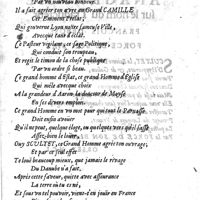 Par un nouveau bonheur.
Il a fait agréer ton avre au Grand CAMILLE
Cet Eminent Prelat;
Qui gouverne Lyon nostre fameuse Ville,
Avecque tant d'éclat.
Ce Pasteur vigilant, ce sage Politique,
Qui conduit son troupeau,
Et regit le timon de la chose publique
Par un ordre si beau.
Ce grand homme d'Estat, ce grand Homme d'Eglise
Qui mêle avecque choix
A la grandeur d'Aaron la douceur de Moyse
En ses divins emplois.
Ce grand Homme en un mot pour qui tout le Parnasse
Doit enfin avouër
Qu'il ne peut, quelque éloge, ou quelques vers qu'il fasse
Assez bien le loüer.
Ouy SCULTET, ce Grand Homme agrée ton ouvrage,
Et par ce seul effet
Te louë beaucoup mieux, que jamais le rivage
Du Danube n'a fait.
Apres cette faveur, quitte avec assurance
La terre où tu és né,
Et sans perdre de temps, vient-t'en jouïr en France